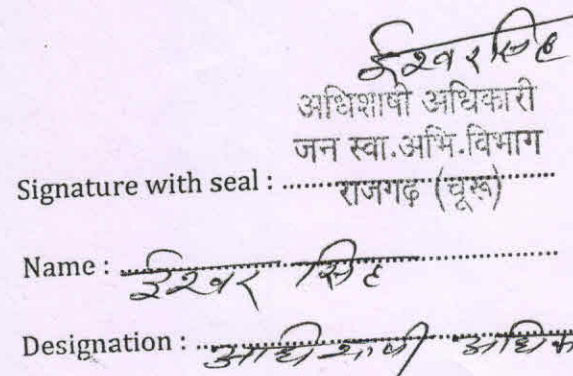 ईश्वर सिंह
अधिशाषी अधिकारी
जन स्वा.अभि.विभाग
Signature with seal : राजगढ़ (चूरू)
Name : ईश्वर सिंह
Designation : अधिशाषी